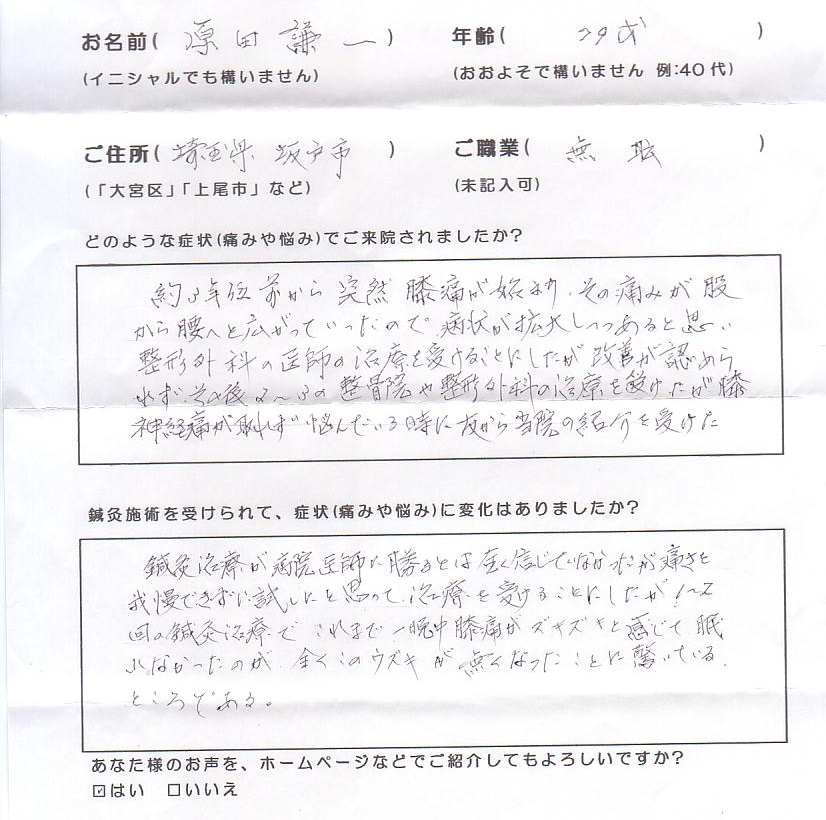 お名前( 原田謙一 ) 年齢( 79才 )
(イニシャルでも構いません) (おおよそで構いません 例:40代)
ご住所( 埼玉県 坂戸市 ) ご職業( 無職 )
(「大宮区」「上尾市」など) (未記入可)
どのような症状(痛みや悩み)でご来院されましたか?
約3年位前から突然膝痛が始まり、その痛みが股
から腰へと広がっていったので病状が拡大しつつあると思い
整形外科の医師の治療を受けることにしたが改善が認めら
れずその後2〜3の整骨院や整形外科の治療を受けたが膝
神経痛が取れず悩んでいる時に友から当院の紹介を受けた
鍼灸施術を受けられて、症状(痛みや悩み)に変化はありましたか?
鍼灸治療が病院医師に勝るとは全く信じていなかったが痛さを
我慢できずに試したいと思って、治療を受けることにしたが1〜2
回の鍼灸治療でこれまで一晩中膝痛がズキズキと感じて眠
れなかったのが、全くこのウズキが無くなったことに驚いている
ところである。
あなた様のお声を、ホームページなどでご紹介してもよろしいですか?
☑はい □いいえ